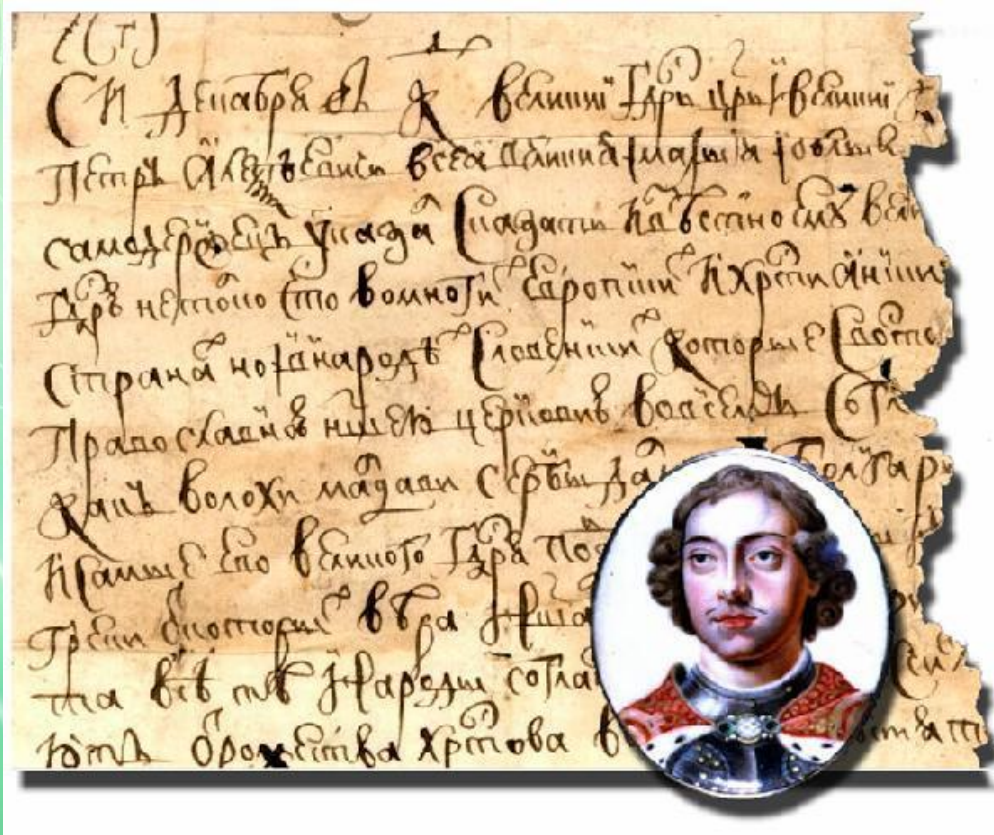 СИ Декабря въ К великиї Гдрь црь ї великиї
Петръ Алеѯѣевичь всеа великиа ї малыа ї бѣлыа
самодержецъ указа сказати извѣстно ему вели
Гдрю не токо что во многи европски и христиански
страна но ї в народе словенски которые с восто
православною нашею церковию во всемъ согл
какъ волохи мадави сербы да болгары
и самые его великого Гдря по
греки о которы вѣра наша
та всѣ тѣ народы согла
ютъ о рожества христова в